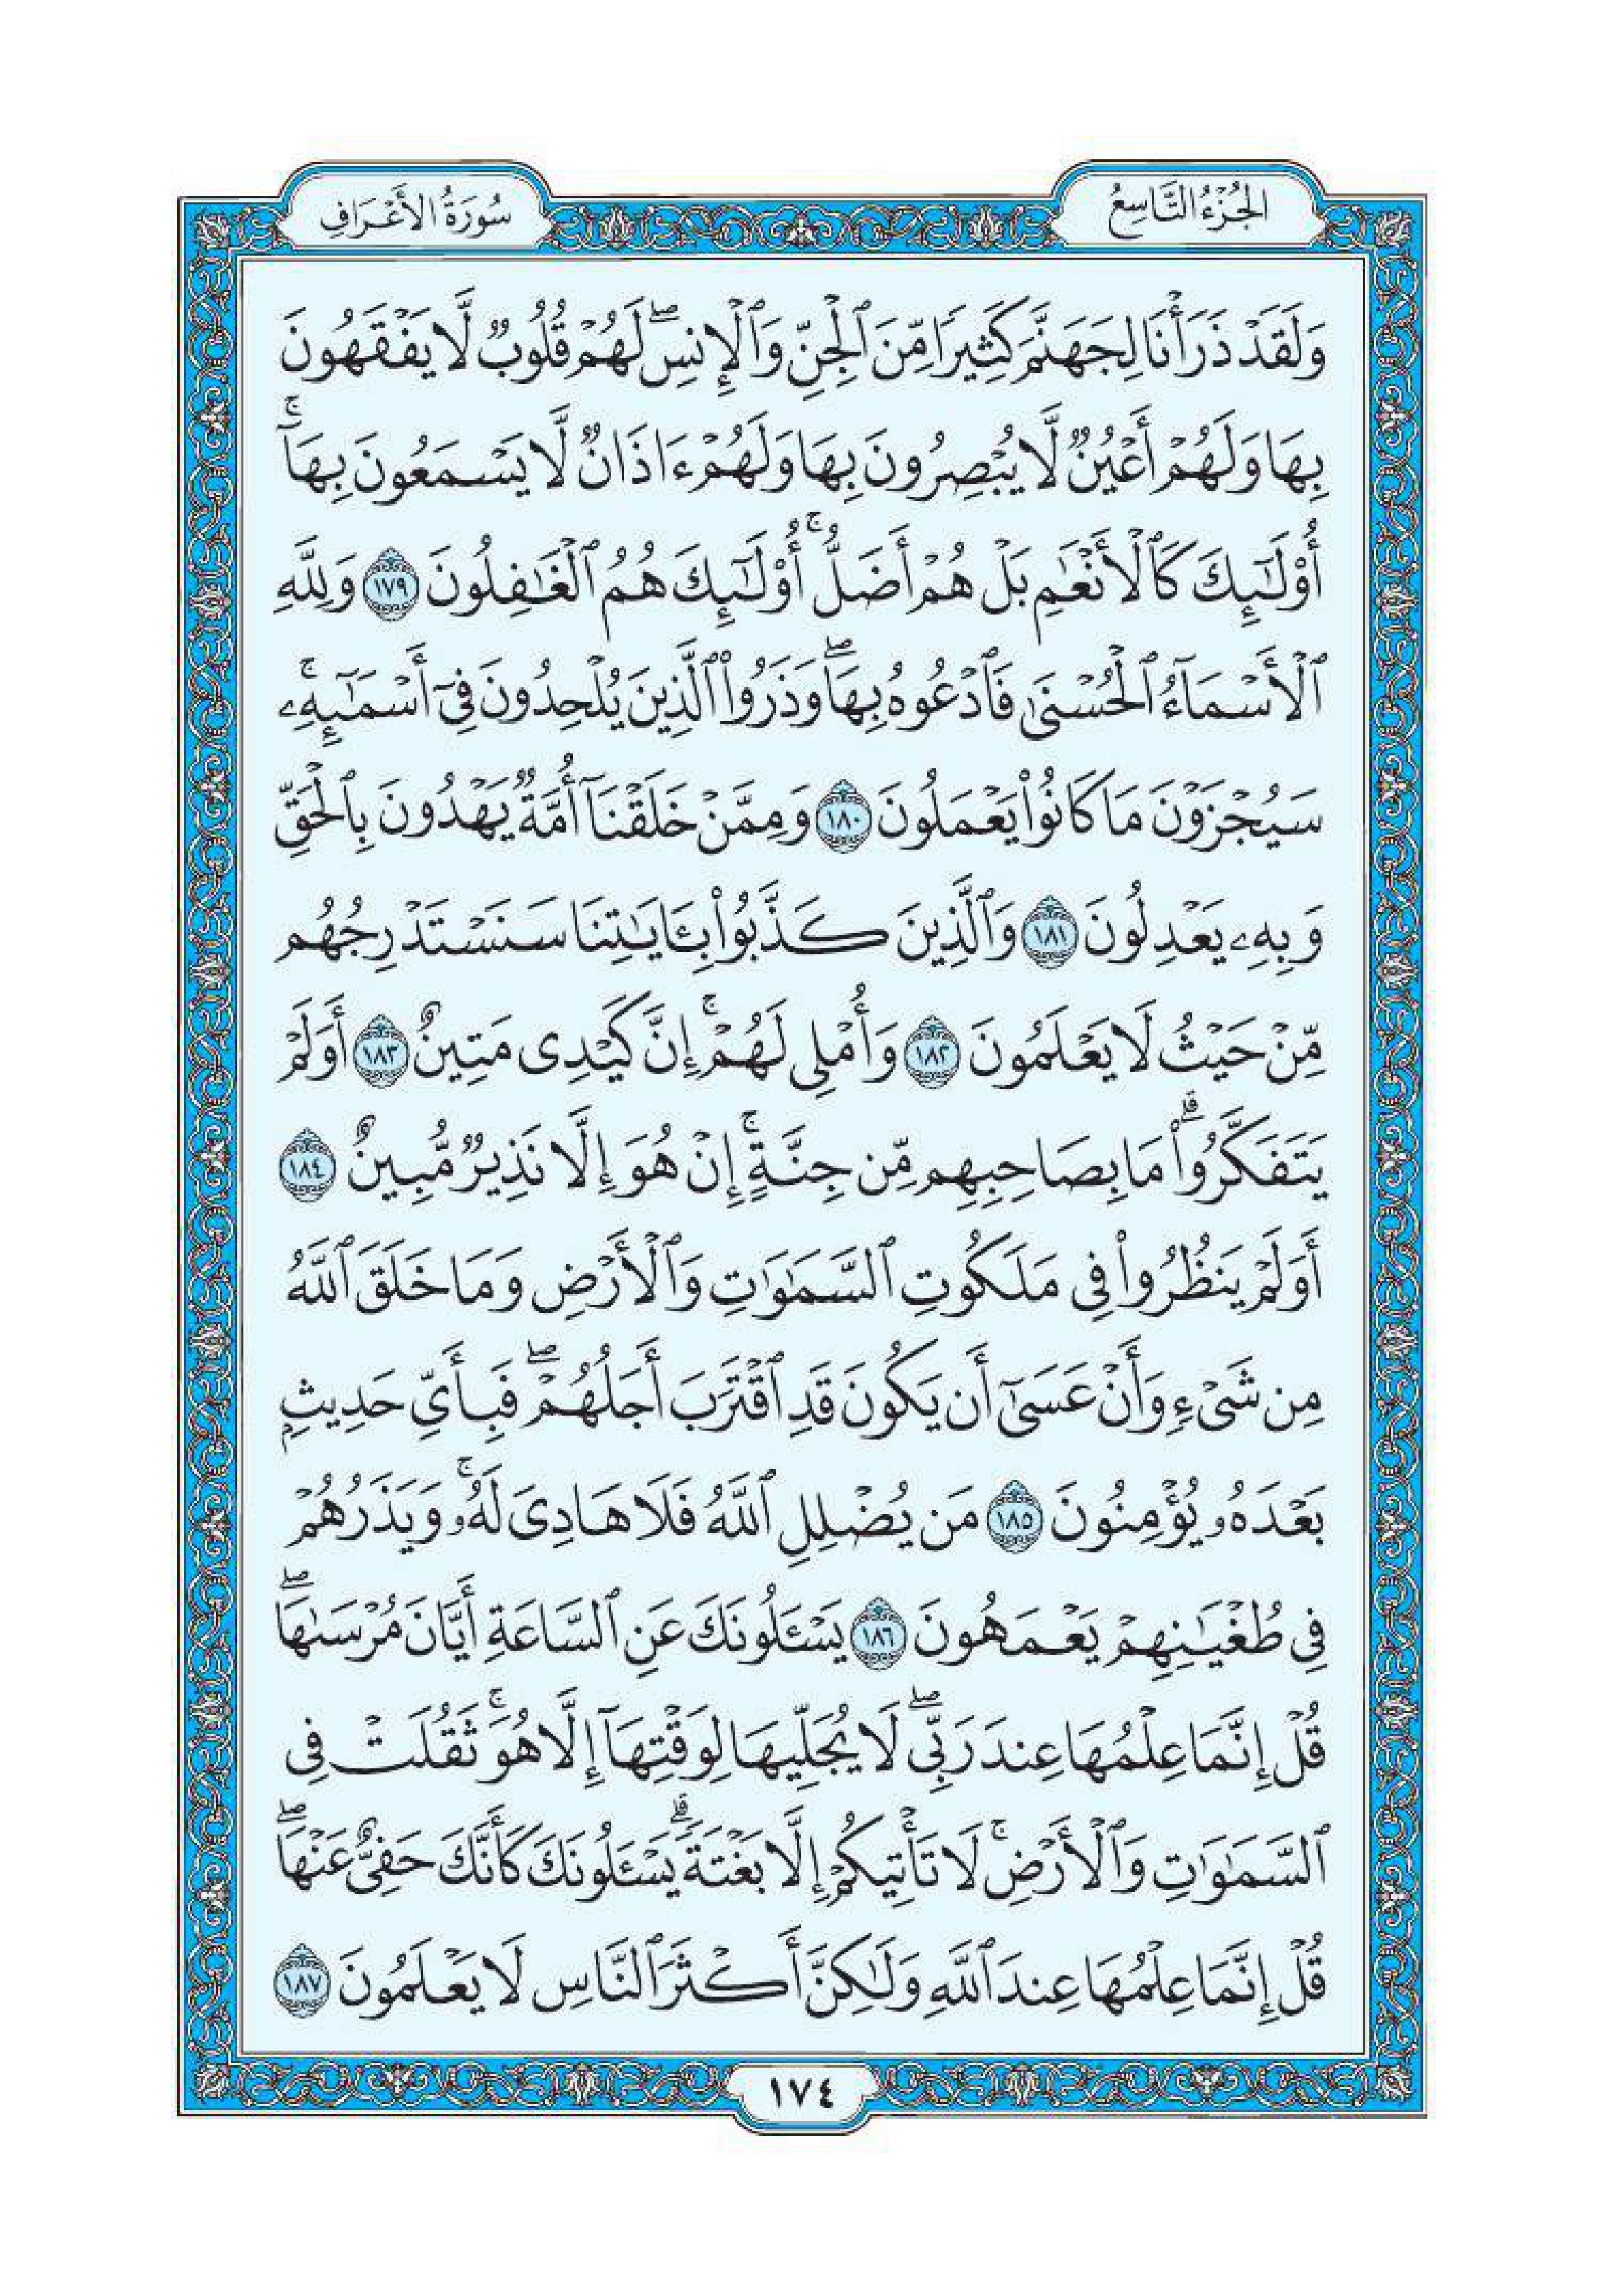 الجُزْءُ التَّاسِعُ
سُورَةُ الأَعْرَافِ
وَلَقَدْ ذَرَأْنَا لِجَهَنَّمَ كَثِيرًا مِّنَ ٱلْجِنِّ وَٱلْإِنسِۖ لَهُمْ قُلُوبٌ لَّا يَفْقَهُونَ
بِهَا وَلَهُمْ أَعْيُنٌ لَّا يُبْصِرُونَ بِهَا وَلَهُمْ ءَاذَانٌ لَّا يَسْمَعُونَ بِهَآۚ
أُوْلَـٰٓئِكَ كَٱلْأَنْعَـٰمِ بَلْ هُمْ أَضَلُّۚ أُوْلَـٰٓئِكَ هُمُ ٱلْغَـٰفِلُونَ ١٧٩ وَلِلَّهِ
ٱلْأَسْمَآءُ ٱلْحُسْنَىٰ فَٱدْعُوهُ بِهَاۖ وَذَرُواْ ٱلَّذِينَ يُلْحِدُونَ فِىٓ أَسْمَـٰٓئِهِۦۚ
سَيُجْزَوْنَ مَا كَانُواْ يَعْمَلُونَ ١٨٠ وَمِمَّنْ خَلَقْنَآ أُمَّةٌ يَهْدُونَ بِٱلْحَقِّ
وَبِهِۦ يَعْدِلُونَ ١٨١ وَٱلَّذِينَ كَذَّبُواْ بِـَٔايَـٰتِنَا سَنَسْتَدْرِجُهُم
مِّنْ حَيْثُ لَا يَعْلَمُونَ ١٨٢ وَأُمْلِى لَهُمْۚ إِنَّ كَيْدِى مَتِينٌ ١٨٣ أَوَلَمْ
يَتَفَكَّرُواْۗ مَا بِصَاحِبِهِم مِّن جِنَّةٍۚ إِنْ هُوَ إِلَّا نَذِيرٌ مُّبِينٌ ١٨٤
أَوَلَمْ يَنظُرُواْ فِى مَلَكُوتِ ٱلسَّمَـٰوَٰتِ وَٱلْأَرْضِ وَمَا خَلَقَ ٱللَّهُ
مِن شَىْءٍ وَأَنْ عَسَىٰٓ أَن يَكُونَ قَدِ ٱقْتَرَبَ أَجَلُهُمْۖ فَبِأَىِّ حَدِيثٍۭ
بَعْدَهُۥ يُؤْمِنُونَ ١٨٥ مَن يُضْلِلِ ٱللَّهُ فَلَا هَادِىَ لَهُۥۚ وَيَذَرُهُمْ
فِى طُغْيَـٰنِهِمْ يَعْمَهُونَ ١٨٦ يَسْـَٔلُونَكَ عَنِ ٱلسَّاعَةِ أَيَّانَ مُرْسَىٰهَاۖ
قُلْ إِنَّمَا عِلْمُهَا عِندَ رَبِّىۖ لَا يُجَلِّيهَا لِوَقْتِهَآ إِلَّا هُوَۚ ثَقُلَتْ فِى
ٱلسَّمَـٰوَٰتِ وَٱلْأَرْضِۚ لَا تَأْتِيكُمْ إِلَّا بَغْتَةًۗ يَسْـَٔلُونَكَ كَأَنَّكَ حَفِىٌّ عَنْهَاۖ
قُلْ إِنَّمَا عِلْمُهَا عِندَ ٱللَّهِ وَلَـٰكِنَّ أَكْثَرَ ٱلنَّاسِ لَا يَعْلَمُونَ ١٨٧
١٧٤